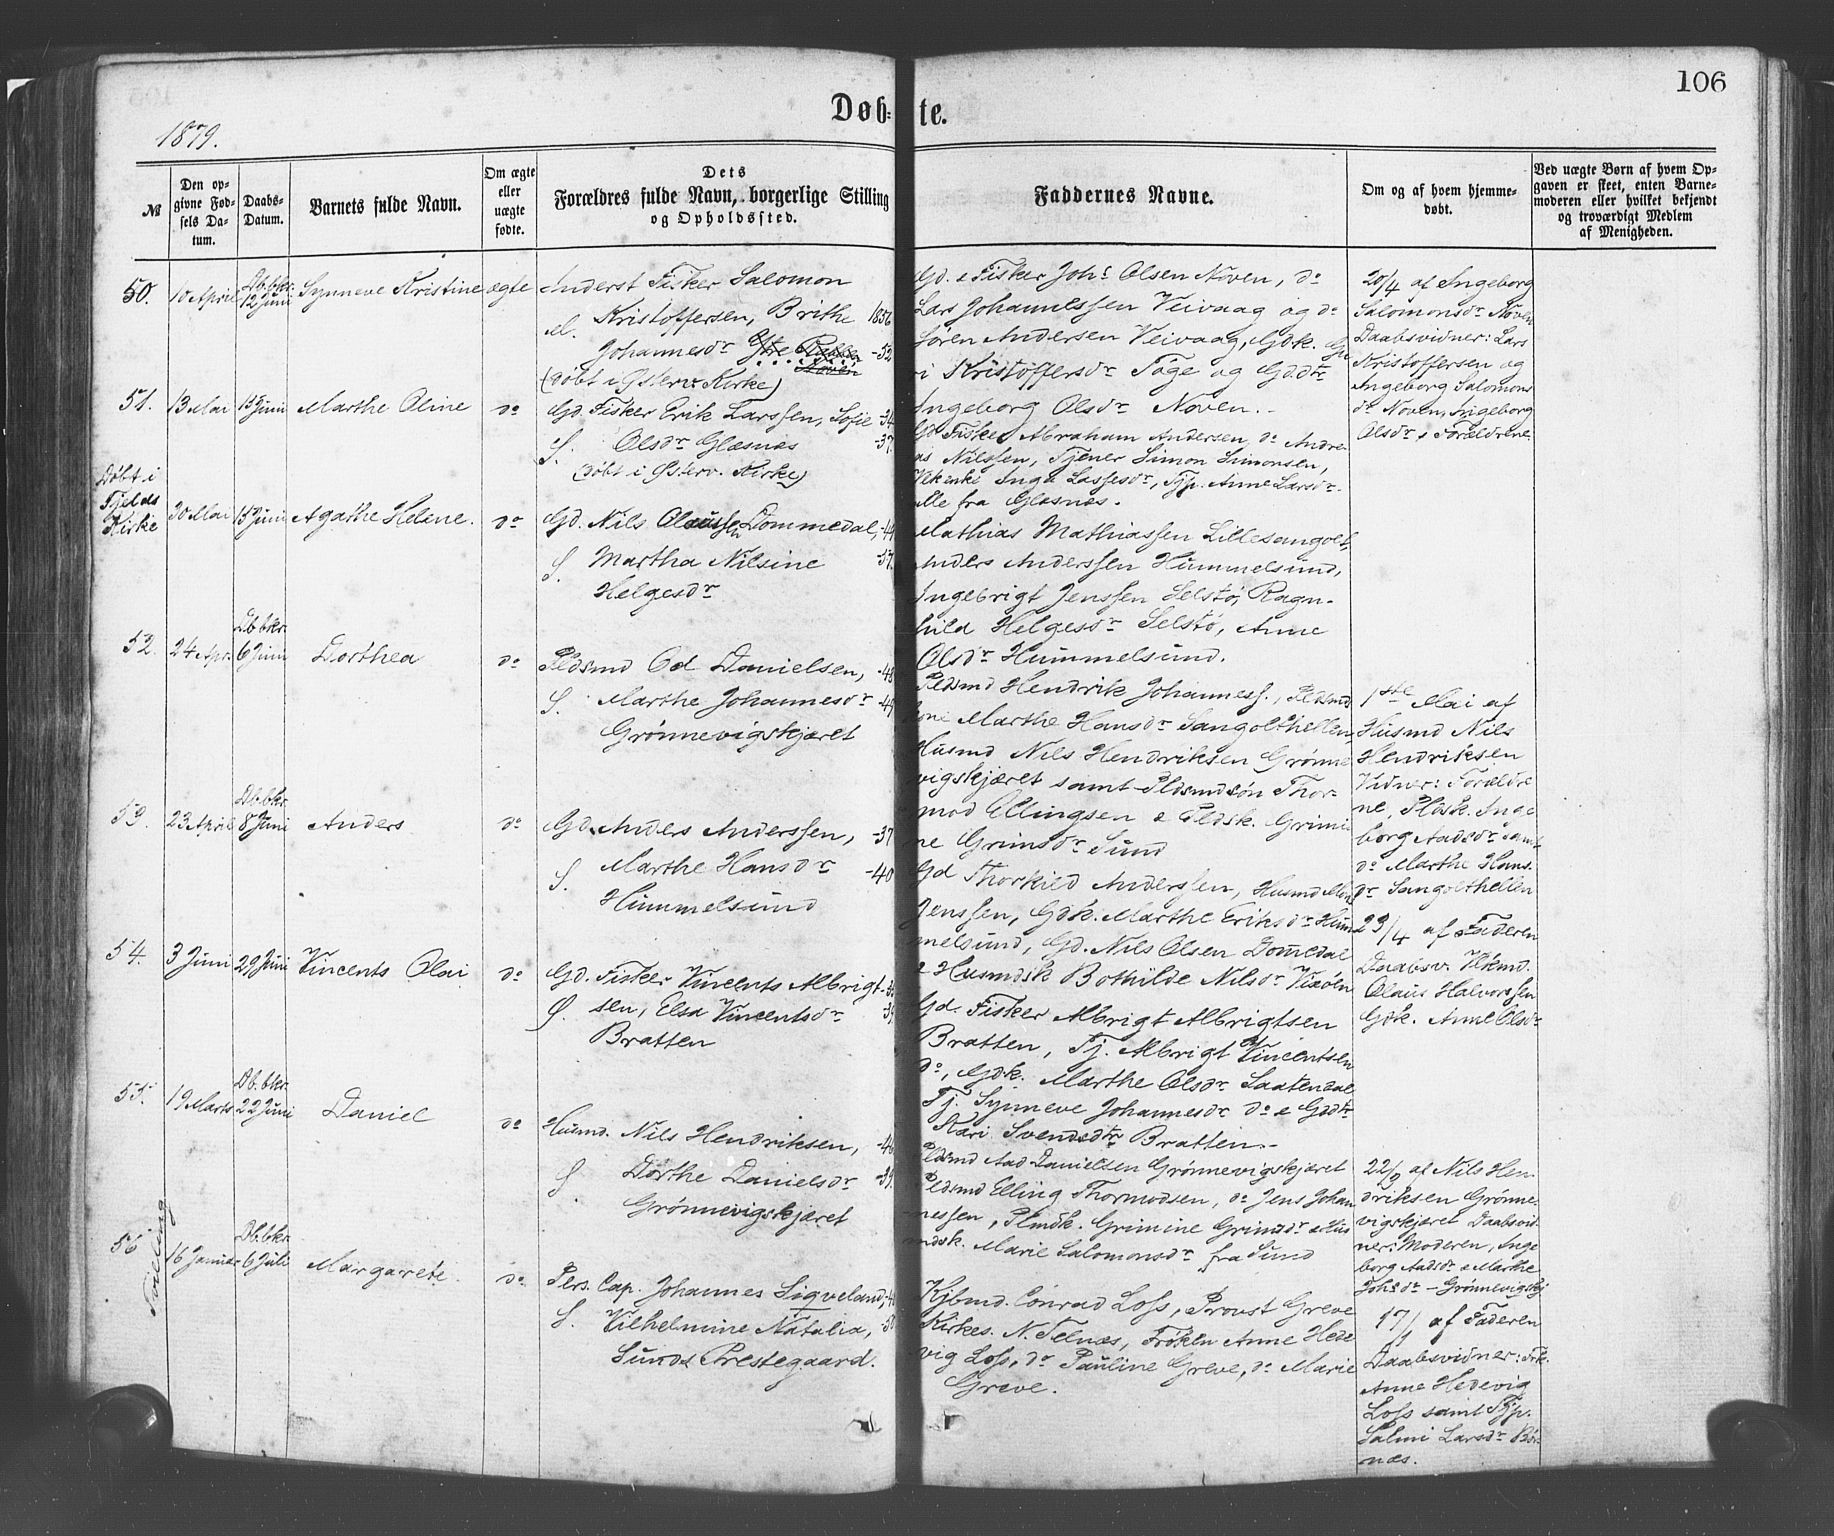 106
Døb- te.
1879.
№
Den opgivne Fødsels Datum.
Daabs-Datum.
Barnets fulde Navn.
Om ægte eller uægte fødte.
Dets Forældres fulde Navn, borgerlige Stilling og Opholdssted.
Faddernes Navne.
Om og af hvem hjemmedøbt.
Ved uægte Børn af hvem Opgaven er skeet, enten Barnemoderen eller hvilket bekjendt og troværdigt Medlem af Menigheden.
50.
10 April
Db. bkr. 12 Juni
Synneve Kristine
ægte
Anderst Fisker Salomon
Kristoffersen, Brithe 1856
Johannesdr Ytre -52
Noven
(døbt i Østerv. Kirke)
Gd. & Fisker Johs Olsen Noven, do
Lars Johannessen Veivaag og do
Søren Andersen Veivaag, Gdk. Gu
ri Kristoffersdr Toge og Gd.dtr
Ingeborg Olsdr Noven.
20/4 af Ingeborg
Salomonsdr Noven
Daabsvidner: Lars
Kristoffersen og
Ingeborg Salomons
dr Noven, Ingeborg
Olsdr & Forældrene
51.
13 Mai
15 Juni
Marthe Oline
do
Gd. Fisker Erik Larssen, Sofie -34
S. Olsdr Glæsnæs -37
(døbt i Østerv. Kirke)
Gd Fisker Abraham Andersen, do Andre
as Nilssen, Tjener Simon Simonsen,
Inga Lassesdr, Tjp. Anne Larsdr
alle fra Glæsnæs.
Døbt i
Fjelds
Kirke
30 Mai
15 Juni
Agathe Helene.
do
Gd. Nils Olaussen Dommedal, -44
S. Martha Nilsine -37.
Helgesdr
Mathias Mathiassen Lillesangolt,
Anders Anderssen Hummelsund,
Ingebrigt Jenssen Selstø, Ragn-
hild Helgesdr Selstø, Anne
Olsdr Hummelsund.
52.
24 Apr.
Db. bkr. 6 Juni
Dorthea
do
Pldsmd Od Danielsen, -48
S. Marthe Johannesdr -49
Grønnevigskjæret
Pldsmd Hendrik Johanness., Pldsmd
kone Marthe Hansdr Sangolthellen,
Husmd Nils Hendriksen Grønne
vigskjæret samt Pldsmdsøn Thor-
mod Ellingsen & Pldsk. Grimi
ne Grimsdr Sund
1ste Mai af
Husmd Nils
Hendriksen
Vidner: Forældre
ne, Pldsk. Inge
borg Aadsdr samt
do Marthe Hans
dr Sangolthellen
53.
23 April
Db. bkr. 8 Juni
Anders
do
Gd. Anders Anderssen, -37
S. Marthe Hansdr -40
Hummelsund
Gd Thorkild Anderssen, Husmd
Jenssen, Gdk. Marthe Eriksdr Hum
melsund, Gd. Nils Olsen Domedal
& Husmdsk Bothilde Nilsdr Vixøen
23/4 af Faderen
Daabsv. Ukmd.
Olaus Halvorssen
Gdk. Anne Olsdr
54.
3 Juni
29 Juni
Vincents Olai
do
Gd. Fisker Vincents Albrigt
Ø. sen, Elsa Vincentsdr -39
Bratten
Gd. Fisker Albrigt Albrigtsen
Bratten, Tj. Albrigt Vincentsen
do, Gdk. Marthe Olsdr Saatendal
Tj. Synneve Johannesdr do & Gddtr
Kari Svendsdtr Bratten.
55.
19 Marts
Db. bkr. 22 Juni
Daniel
do
Husmd. Nils Hendriksen, -46
S Dorthe Danielsdr -39.
Grønnevigskjæret
Pldsmd Aad Danielsen Grønnevigskjæret
Pldsmd Elling Thormodsen, do Jens Johan
nessen, Plmdk. Grimine Grimsdr & Hus
mdsk. Marie Salomonsdr fra Sund
22/3 af Nils Hen
driksen Grønne-
vigskjæret Daabsvid-
ner: Moderen, Inge
borg Aadsdr & Marthe
Johsdr - Grønnevigskj
56
Tvilling
16 Januar
Db. bkr. 6 Juli
Margarete
do
Pers. Cap. Johannes Sigveland,
S. Vilhelmine Natalia, -50
Sunds Prestegaard.
Kjbmd. Conrad Loss, Provst Greve
Kirkes. N. Telnæs, Frøken Anne Hede
vig Loss, do Pauline Greve, do Marie
Greve.
17/1 af Faderen
Daabsvidner: Frk.
Anne Hedevig
Loss samt Tjp.
Salmi Larsdr Bør-
næs.